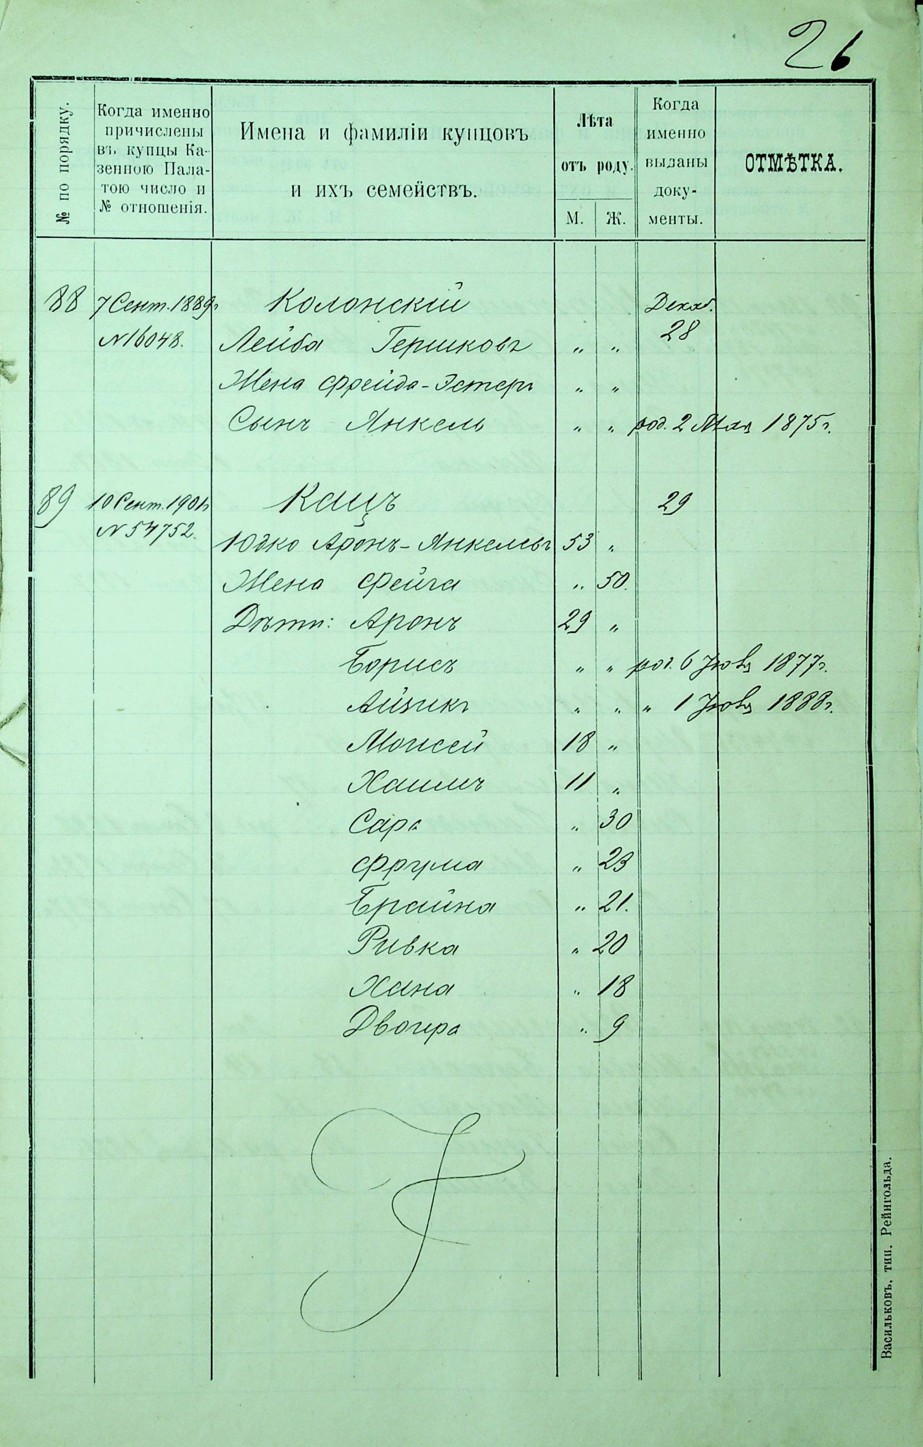 26
№ по порядку.
Когда именно
причислены
въ купцы Ка-
зенною Пала-
тою число и
№ отношенія.
Имена и фамиліи купцовъ
и ихъ семействъ.
Лѣта
отъ роду.
М. Ж.
Когда
именно
выданы
доку-
менты.
ОТМѢТКА.
88 7 Сент. 1889г. Колонскій Декаб.
№16048. Лейба Гершковъ „ „ 28
Жена Фрейда-Эстеръ „ „
Сынъ Янкель „ „ род. 2 Мая 1875г.
89 10 Сент. 1901г. Кацъ 29
№ 54752. Юдко Аронъ-Янкелевъ 53 „
Жена Фейга „ 50.
Дѣти: Аронъ 29 „
Борисъ „ „ род. 6 Янв. 1877г.
Айзикъ „ „ „ 1 Янв. 1888г.
Моисей 18 „
Хаимъ 11 „
Сара „ 30
Фрума „ 23
Брайна „ 21.
Ривка „ 20
Хана „ 18
Двойра „ 9
Васильковъ, тип. Рейнгольда.